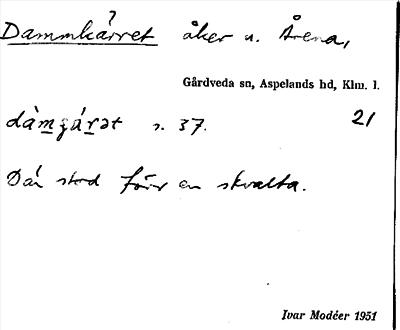 Dammkärret åker u. Årena,
Gårdveda sn, Aspelands hd, Klm. l.
dàmʒárət s. 37. 21
Där stod förr en skvalta.
Ivar Modéer 1951